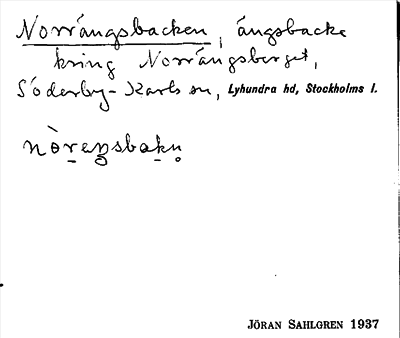 Norrängsbacken, ängsbacke
kring Norrängsberget,
Söderby-Karls sn, Lyhundra hd, Stockholms l.
nòreŋsbakn̥
JÖRAN SAHLGREN 1937